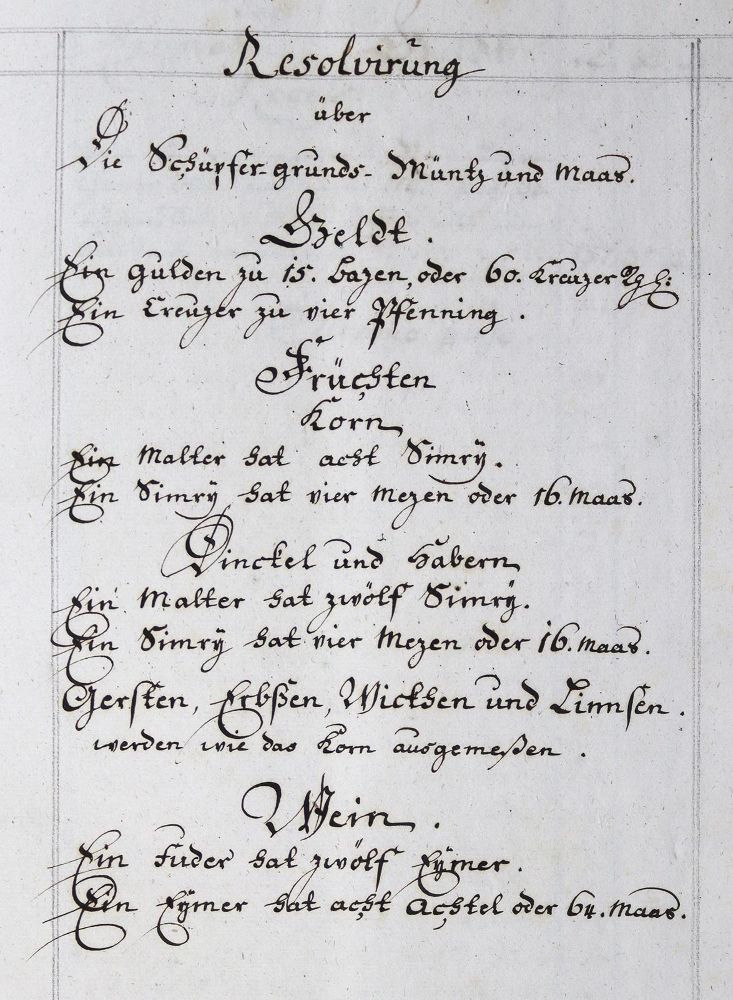 Resolvirung
über
Die Schüpfer-grunds- Müntz und Maas.
Geldt.
Ein Gulden zu 15. bazen, oder 60. Kreuzer
Ein Creuzer zu vier Pfenning.
Früchten
Korn
Ein Malter hat acht Simrÿ.
Ein Simrÿ hat vier Mezen oder 16. Maas.
Dinckel und Habern
Ein Malter hat zwölf Simrÿ.
Ein Simrÿ hat vier Mezen oder 16. Maas.
Gersten, Erbßen, Wickhen und Linnsen.
werden wie das Korn ausgemeßen.
Wein.
Ein Fuder hat zwölf Eÿmer.
Ein Eÿmer hat acht Achtel oder 64. Maas.